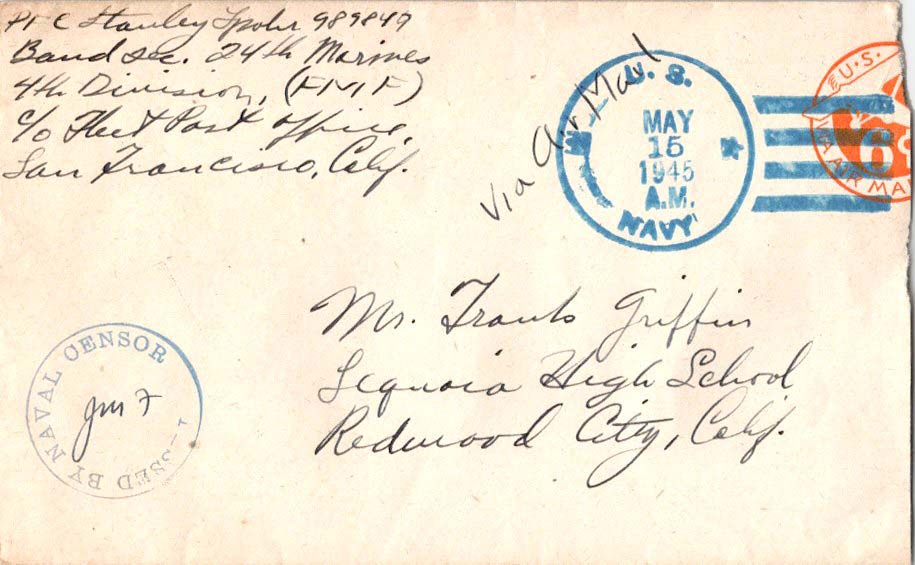 PFC Stanley Spohr 989849
Band sec. 24th Marines
4th Division, (FMF)
c/o Fleet Post Office,
San Francisco, Calif.
Via Air Mail
U.S.
MAY
15
1945
A.M.
NAVY
U.S.
6¢
VIA AIR MA
Mr. Frank Griffin
Sequoia High School
Redwood City, Calif.
PASSED BY NAVAL CENSOR